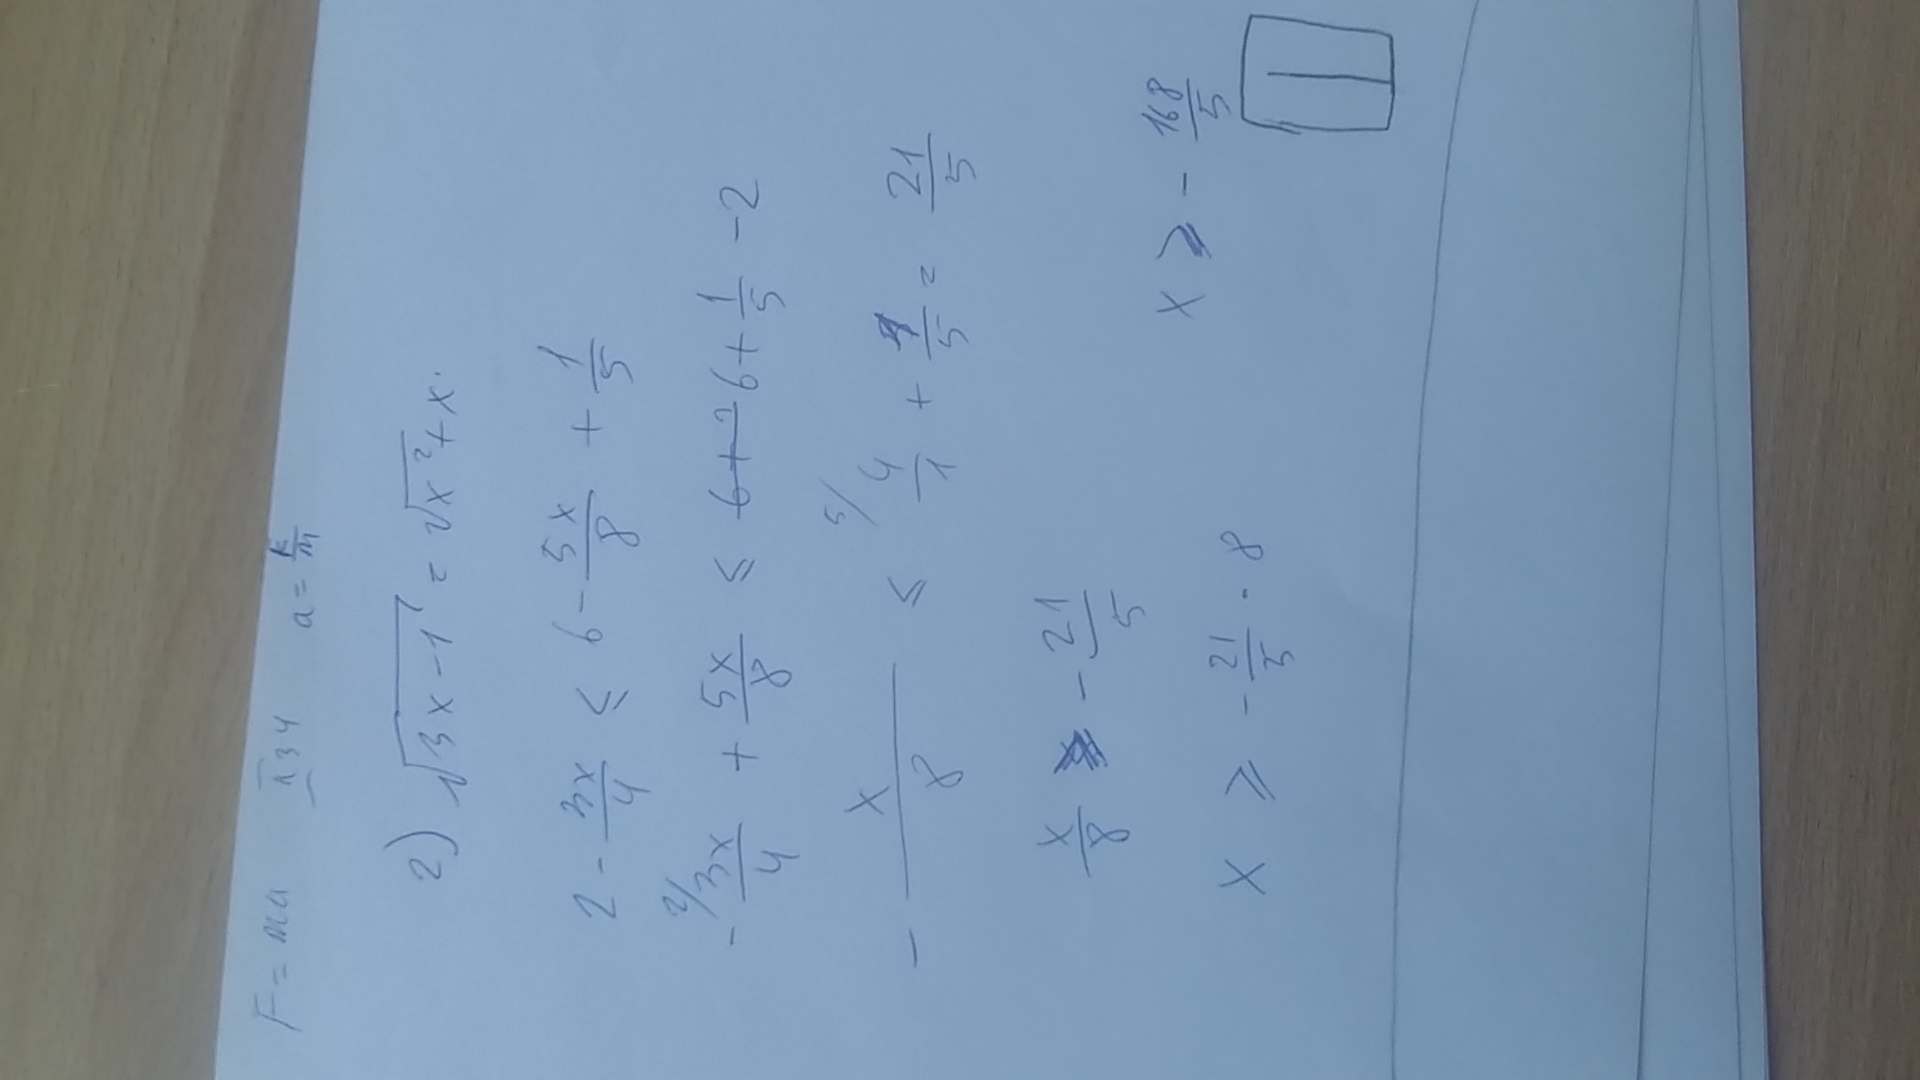 F = ma 134 a = F/m
2) √(3x-1) = √(x²+x).
2 - 3x/4 ≤ 6 - 5x/8 + 1/5
- 2/ 3x/4 + 5x/8 ≤ 6+2 6 + 1/5 - 2
- x/8 ≤ 5/ 4/1 + 1/5 = 21/5
x/8 ≥ - 21/5
x ≥ - 21/5 · 8
x ≥ - 168/5